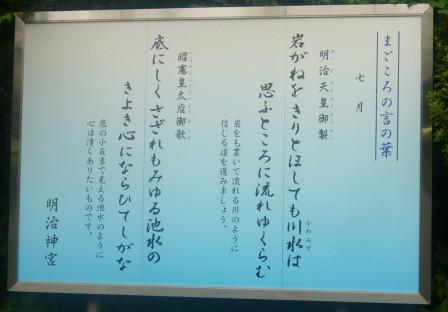 まごころの言の葉
七月
明治天皇御製
岩がねをきりとほしても川水は
思ふところに流れゆくらむ
岩をも貫いて流れる川のように
信じる道を進みましょう。
昭憲皇太后御歌
底にしくさざれもみゆる池水の
きよき心にならひてしがな
底の小石まで見える池水のように
心は清くありたいものです。
明治神宮